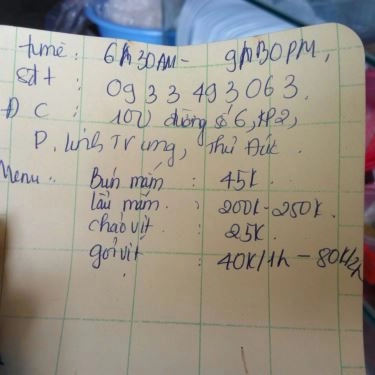 time : 6h30AM - 9h30PM,
sđt : 0933493063.
Đ C : 100 đường số 6, KP2,
P. Linh Trung, Thủ Đức.
Menu : Bún mắm : 45k.
lẩu mắm : 200k - 250k.
cháo vịt : 25k.
gỏi vịt : 40k/1h - 80k/2h